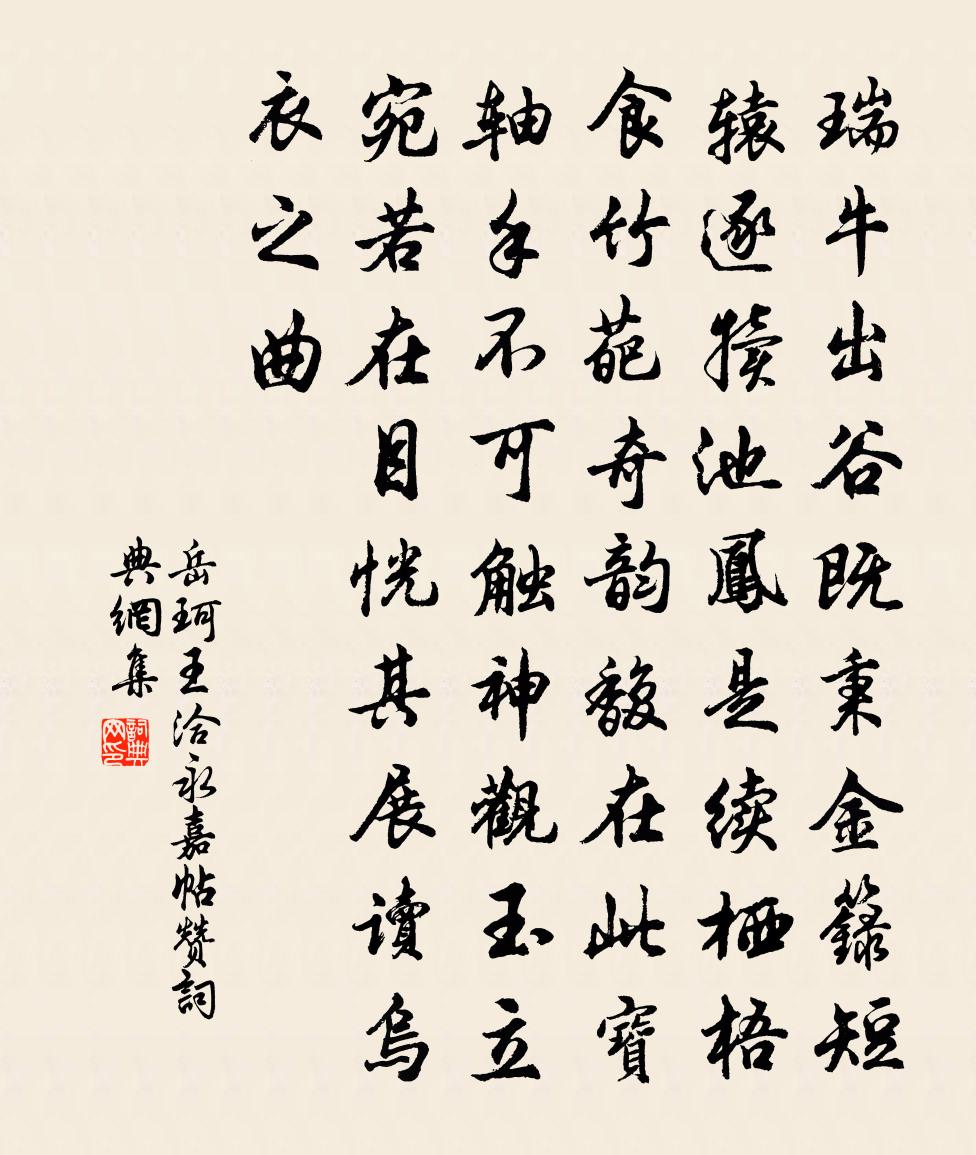 瑞牛出谷既秉金籙短
辕逐犊池鳳是续栖梧
食竹葩奇韵馥在此寶
轴手不可触神觀玉立
宛若在目恍其展读烏
衣之曲
岳珂王洽永嘉帖赞詞
典網集
詞典
网印